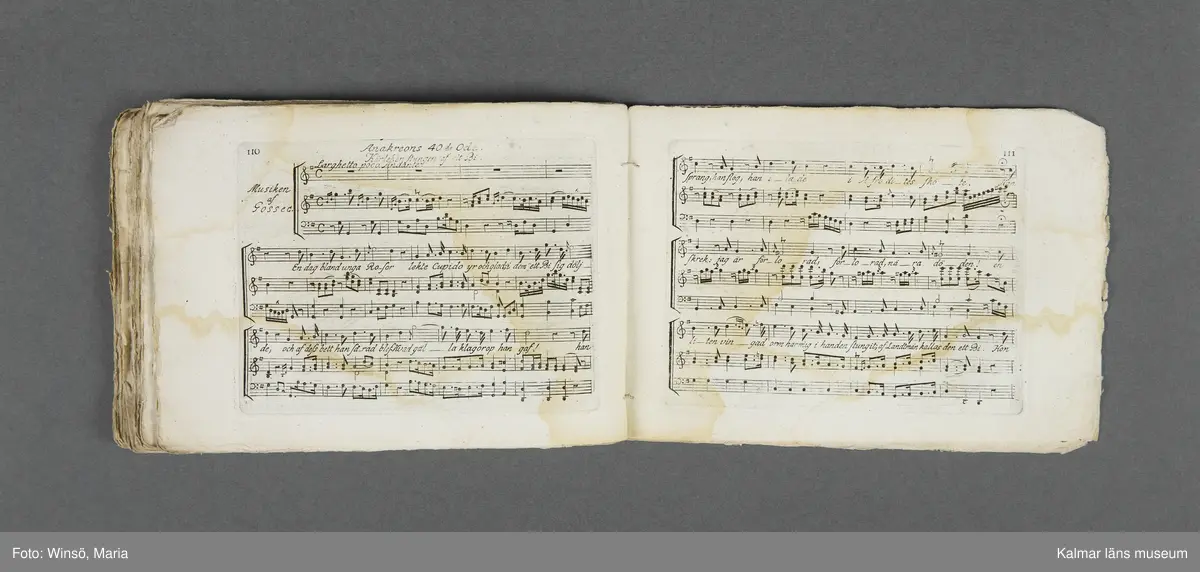 110
Anakreons 40 de Ode.
Kärleken stungen af ett Bi
Larghetto poco Andante
Musiken
af
Gossec.
En dag bland unga Ro-sor lekte Cupido yr och glads den ett Bi sig dolj
de, och af dess bett han för. gäl la klagorop han gaf! han
111
sprang, han flög, han i-la de i sköt
skrek: jag är för-lo rad, för-lo-rad, nå-ra dö-den, en
li-ten vin gad orm har mig i handen stungit, af Landtmän kallas den ett Bi. Hon
Foto: Winsö, Maria
Kalmar läns museum